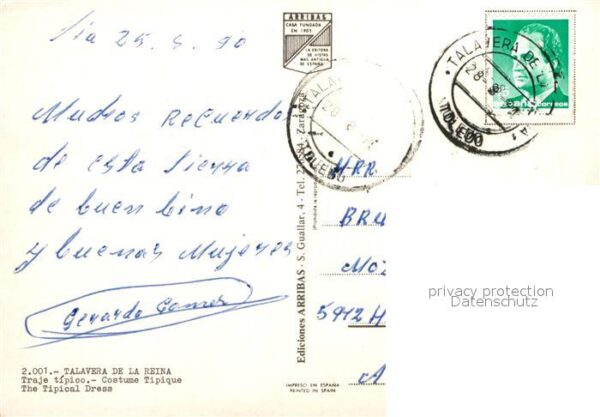 Dia 25. 4. 90
Muchos Recuerdos
de esta tierra
de buen bino
y buenas Mujeres
Gerardo Gomez
2.001.- TALAVERA DE LA REINA
Traje típico.- Costume Tipique
The Tipical Dress
ARRIBAS
CASA FUNDADA
EN 1905
LA EDITORA
DE VISTAS
MAS ANTIGUA
DE ESPAÑA
Ediciones ARRIBAS - S. Guallar, 4 - Tel. - Zaragoza
IMPRESO EN ESPAÑA
PRINTED IN SPAIN
TALAVERA DE LA
TOLEDO
TALAVE
TOLEDO
españa correos
HRR
BRU
MOZ
5912 H
privacy protection
Datenschutz